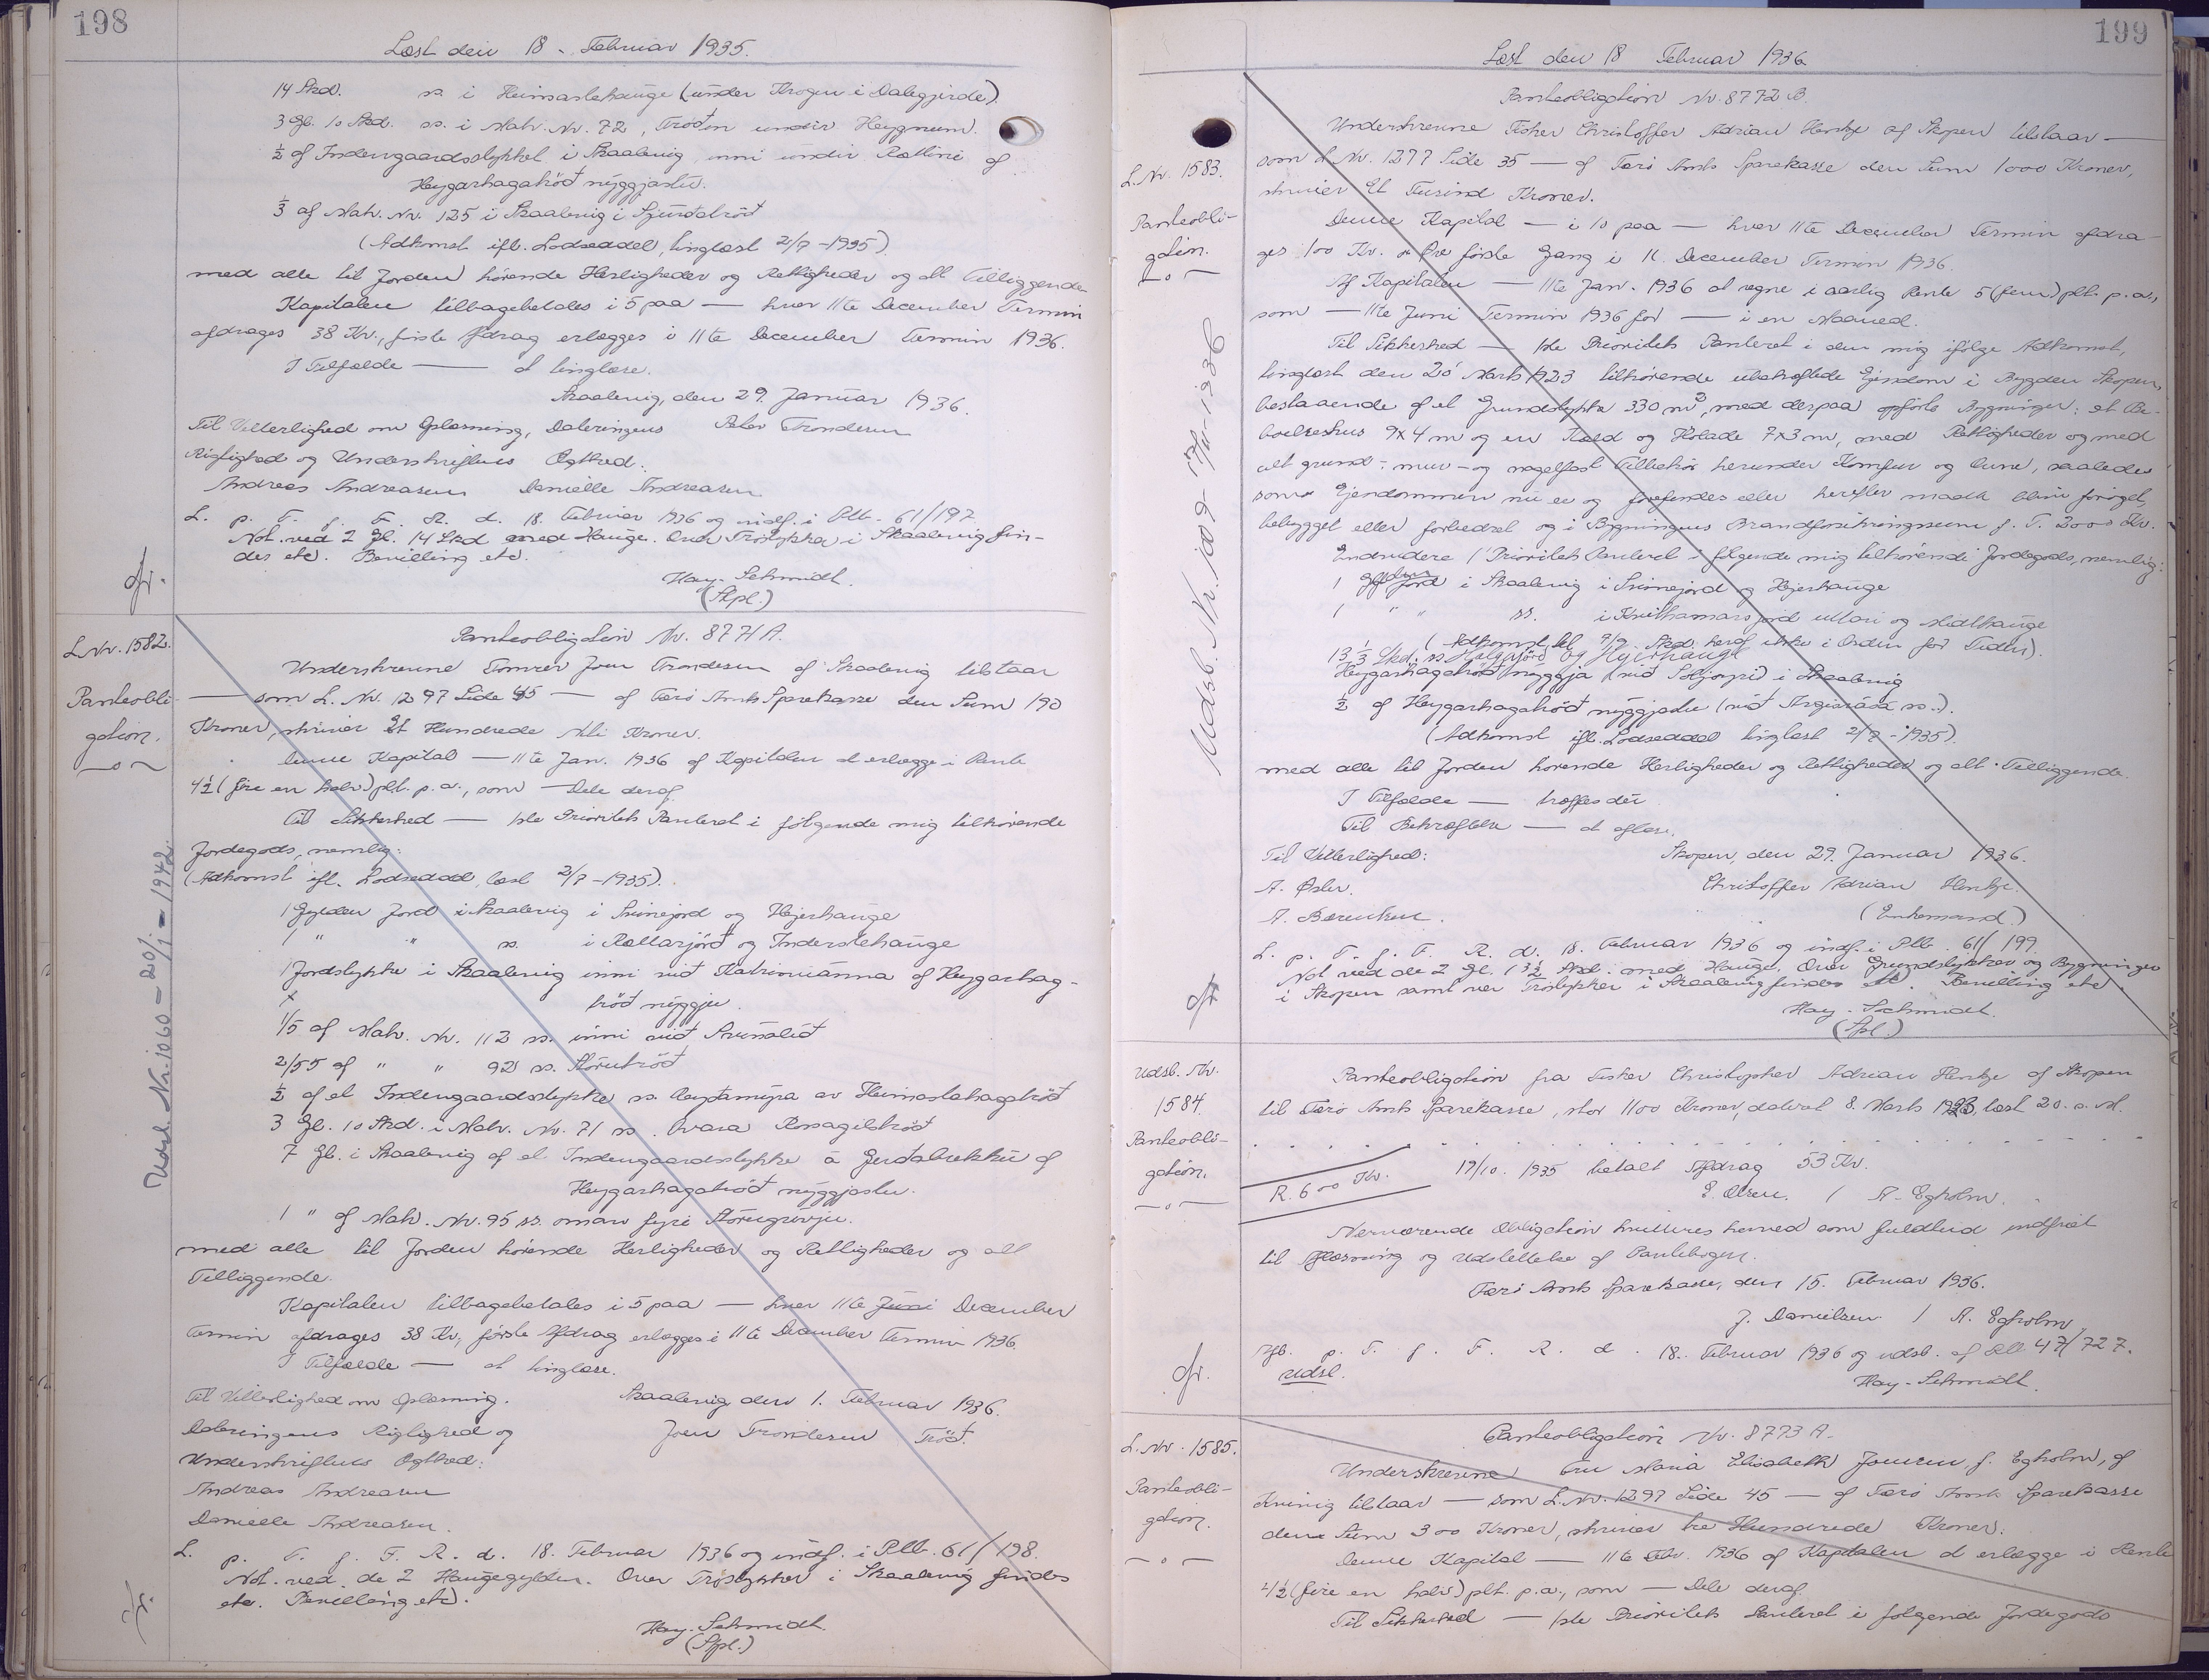 198
Læst den 18. Februar 1935.
14 Skd. ss. i Heimastehauge (under Krogen i Dalegjerde).
3 Gl. 10 Skd. ss. i Matr. Nr. 72, Tröðin undir Heygnum.
½ af Indengaardsstykket i Skaalevig inni undir Rættini af
Heygarhagatröð nýggjastu.
⅓ af Matr. Nr. 125 i Skaalevig i Sjúrðatröð
(Adkomst ifl. Lodseddel, tinglæst 2/7-1935)
med alle til Jorden hörende Herligheder og Rettigheder og alt Tilliggende
Kapitalen tilbagebetales i 5 paa — hver 11te December Termin
afdrages 38 Kr., første Afdrag erlægges i 11te December Termin 1936.
I Tilfælde — at tinglæse.
Skaalevig, den 29. Januar 1936.
Til Vitterlighed om Oplæsning, Dateringens Peter Trondesen
Rigtighed og Underskriftens Ægthed:
Andreas Andreasen Danielle Andreasen
L. p. T. f. F. R. d. 18. Februar 1936 og indf. i Ptb. 61/197
Not. ved 2 Gl. 14 Skd med Hauge. Over Tröstykker i Skaalevig fin-
des etc. Bevilling etc.
Hay-Schmidt.
(Spl.)
L. Nr. 1582.
Panteobli-
gation.
Udsl. Nr. 1060 - 20/1 - 1942.
Panteobligation Nr. 8771 A.
Underskrevne Tømrer Joen Trondesen af Skaalevig tilstaar
— som L. Nr. 1297 Side 45 — af Færö Amts Sparekasse den Sum 190
Kroner, skriver Et Hundrede Niti Kroner.
Denne Kapital — 11te Jan. 1936 af Kapitalen at erlægge i Rente
4½ (fire en halv) pct. p.a., som — Dele deraf.
Til Sikkerhed — 1ste Prioritets Panteret i følgende mig tilhørende
Jordegods, nemlig:
(Adkomst ifl. Lodseddel, læst 2/7-1935).
1 Gylden Jord i Skaalevig i Svinejord og Hejerhauge
1 " " ss. i Rættarjörð og Inderstehauge
1 Jordstykke i Skaalevig inni við Katrinumanna af Heygarhag-
tröð nýggju.
1/5 af Matr. Nr. 112 ss. inni við
2/55 af " " 92 ss. Stórutröð
½ af et Indengaardsstykke ss. av Heimastahagatröð
3 Gl. 10 Skd. i Matr. Nr. 71 ss.
7 Gl. i Skaalevig af et Indengaardsstykke á Gerðabrekku af
Heygarhagatröð nýggjastu.
1 " af Matr. Nr. 95 ss. oman fyri Stórugryvju.
med alle til Jorden hörende Herligheder og Rettigheder og alt
Tilliggende.
Kapitalen tilbagebetales i 5 paa — hver 11te Juni December
Termin afdrages 38 Kr., første Afdrag erlægges i 11te December Termin 1936.
I Tilfælde — at tinglæse.
Til Vitterlighed om Oplæsning. Skaalevig den 1. Februar 1936.
Dateringens Rigtighed og Joen Trondesen Tröð.
Underskriftens Ægthed:
Andreas Andreasen
Danielle Andreasen.
L. p. T. f. F. R. d. 18. Februar 1936 og indf. i Ptb. 61/198.
Not. ved de 2 Haugegylden. Over Tröstykker i Skaalevig findes
etc. Bevilling etc.
Hay-Schmidt.
(Spl.)
199
Læst den 18 Februar 1936
L. Nr. 1583.
Panteobli-
gation.
Panteobligation Nr. 8772 B.
Underskrevne Fisker Christoffer Adrian Hentze af Skopen tilstaar —
som L. Nr. 1277 Side 35 — af Færö Amts Sparekasse den Sum 1000 Kroner,
skriver Et Tusind Kroner.
Denne Kapital — i 10 paa — hver 11te December Termin afdra-
ges 100 Kr. Øre første Gang i 11. December Termin 1936.
Af Kapitalen — 11te Jan. 1936 at regne i aarlig Rente 5 (fem) pct. p.a.,
som — 11te Juni Termin 1936 for — i en Maaned.
Til Sikkerhed — 1ste Prioritets Panteret i den mig ifølge Adkomst,
tinglæst den 20' Marts 1923 tilhörende ubehæftede Ejendom i Bygden Skopen,
bestaaende af et Grundstykke 330 m², med derpaa opførte Bygninger: et Be-
boelseshus 9x4 m og en Kæld og Hölade 7x3 m, med Rettigheder og med
alt grund-, mur- og nagelfast Tilbehör herunder Komfur og Ovne, saaledes
som Ejendommen nu er og forefindes eller herefter maatte blive foröget,
bebygget eller forbedret og i Bygningens Brandforsikringssum f. T. 3000 Kr.
Endvidere 1' Prioritets Panteret i følgende mig tilhörende Jordegods, nemlig:
1 Gylden Jord i Skaalevig i Svinejord og Hejerhauge
1 " " ss. i Knithamarsjörð uttari og Midthauge
(Adkomst til Skd. heraf ikke i Orden for Tiden).
13⅓ Skd. ss. og Hejerhauge
Heygarhagatröð nýggja (við ) i Skaalevig
½ af Heygarhagatröð nýggjastu (við ss.).
(Adkomst ifl. Lodseddel tinglæst 2/7-1935).
med alle til Jorden hørende Herligheder og Rettigheder og alt Tilliggende.
I Tilfælde — træffes der
Til Bekræftelse — at aflæse.
Til Vitterlighed: Skopen, den 29. Januar 1936.
A. Öster. Christoffer Adrian Hentze.
A. Bærentsen. (Enkemand)
L. p. T. f. F. R. d. 18. Februar 1936 og indf. i Ptb. 61/199
Not. ved de 2 Gl. 13⅓ Skd. med Hauge. Over Grundstykker og Bygninger
i Skopen samt over Tröstykker i Skaalevig findes etc. Bevilling etc.
Hay-Schmidt.
(Spl.)
Udsl. Nr.
1584.
Panteobli-
gation.
Panteobligation fra Fisker Christopher Adrian Hentze af Skopen
til Færö Amts Sparekasse, stor 1100 Kroner, dateret 8. Marts 1923, læst 20. s. M.
R. 600 Kr.
19/10. 1935 betalt Afdrag 53 Kr.
E. Olsen. / A. Egholm.
Nærværende Obligation kvitteres herved som fuldtud indfriet
til Aflæsning og Udslettelse af Pantebogen.
Færö Amts Sparekasse, den 15. Februar 1936.
J. Danielsen / A. Egholm.
Afl. p. T. f. F. R. d. 18. Februar 1936 og udsl. af Ptb. 47/727.
Udsl.
Hay-Schmidt.
L. Nr. 1585.
Panteobli-
gation.
Panteobligation Nr. 8773 A.
Underskrevne Fru Maria Elisabeth Joensen, f. Egholm, af
Kvivig tilstaar — som L. Nr. 1297 Side 45 — af Færö Amts Sparekasse
den Sum 300 Kroner, skriver tre Hundrede Kroner.
Denne Kapital — 11te Febr. 1936 af Kapitalen at erlægge i Rente
4½ (fire en halv) pct. p.a., som — Dele deraf.
Til Sikkerhed — 1ste Prioritets Panteret i følgende Jordegods